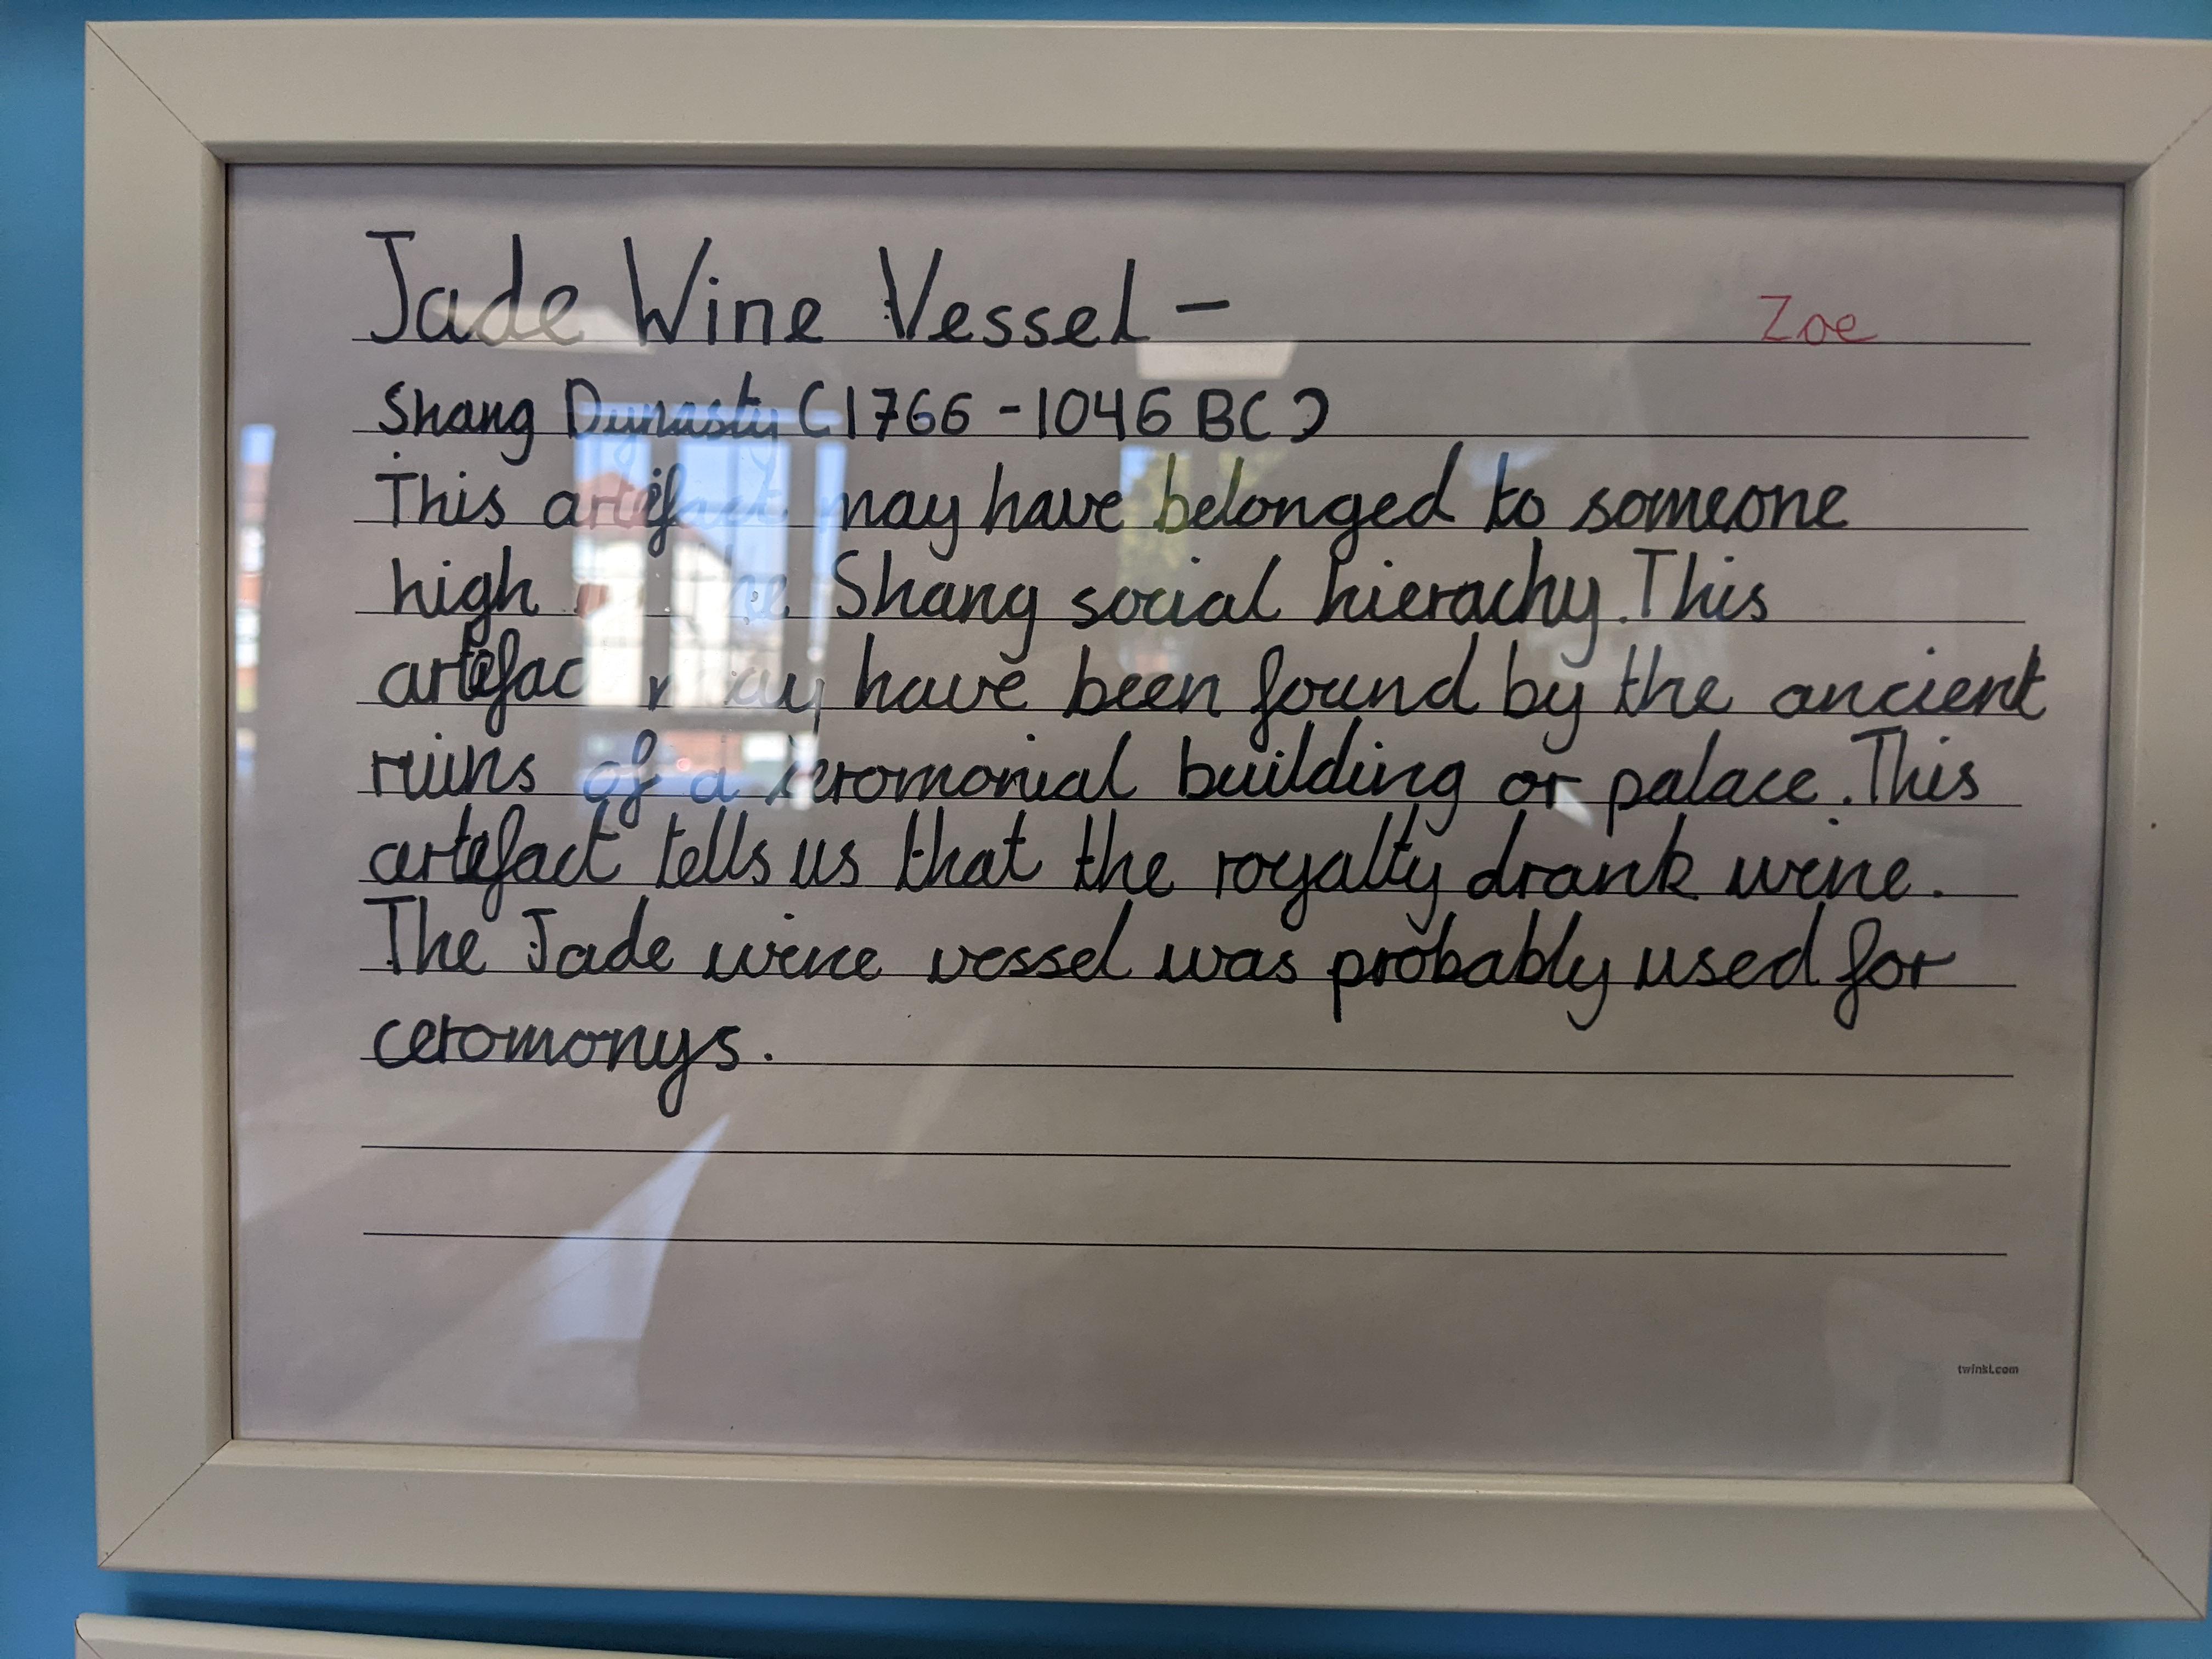 Jade Wine Vessel - Zoe
Shang Dynasty (1766 - 1046 BC)
This artefact may have belonged to someone
high the Shang social hierachy. This
artefact may have been found by the ancient
ruins of a ceromonial building or palace. This
artefact tells us that the royalty drank wine.
The Jade wine vessel was probably used for
ceromonys.
twinkl.com